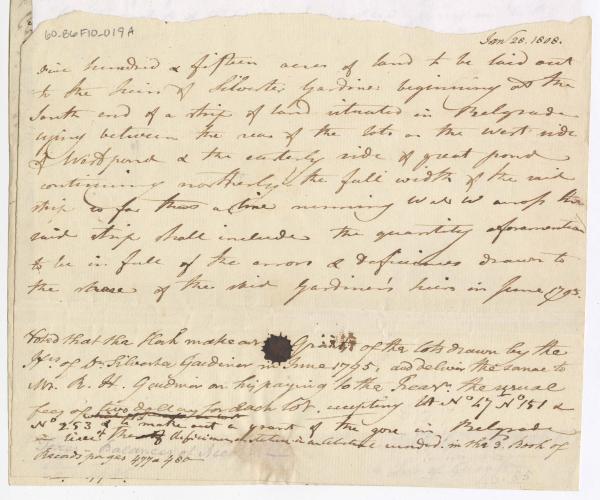 60-B6F10-019A
Jany 28. 1808.
nine hundred & fifteen acres of land to be laid out
to the heirs of Silvester Gardiner beginning at the
South end of a strip of land situated in Belgrade
lying between the rear of the lots on the west side
of West pond & the easterly side of great pond
continuing northerly the full width of the said
strip so far that a line running W & W across the
said strip shall include the quantity aforemention
to be in full of the errors & Deficiencies drawn to
the share of the said Gardiner's heirs in June 1795
Voted that the Clerk make a of the lots drawn by the
Hrs of Dr Silvester Gardiner in June 1795, and deliver the same to
Mr. R. H. Gardiner on his paying to the the usual
fees of two dollars for each lot. excepting Lt No 47 No 151 &
No 253 & to make out a grant of the gore in Belgrade
in the of deficiences recorded in the 3. Book of
Records pages 477 & 480